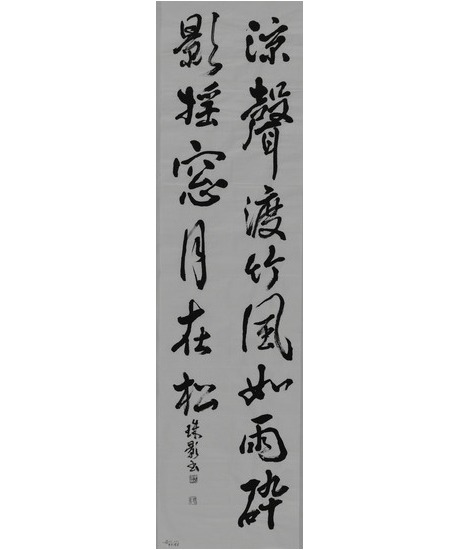 涼聲渡竹風如雨碎
影搖窓月在松
珠影書